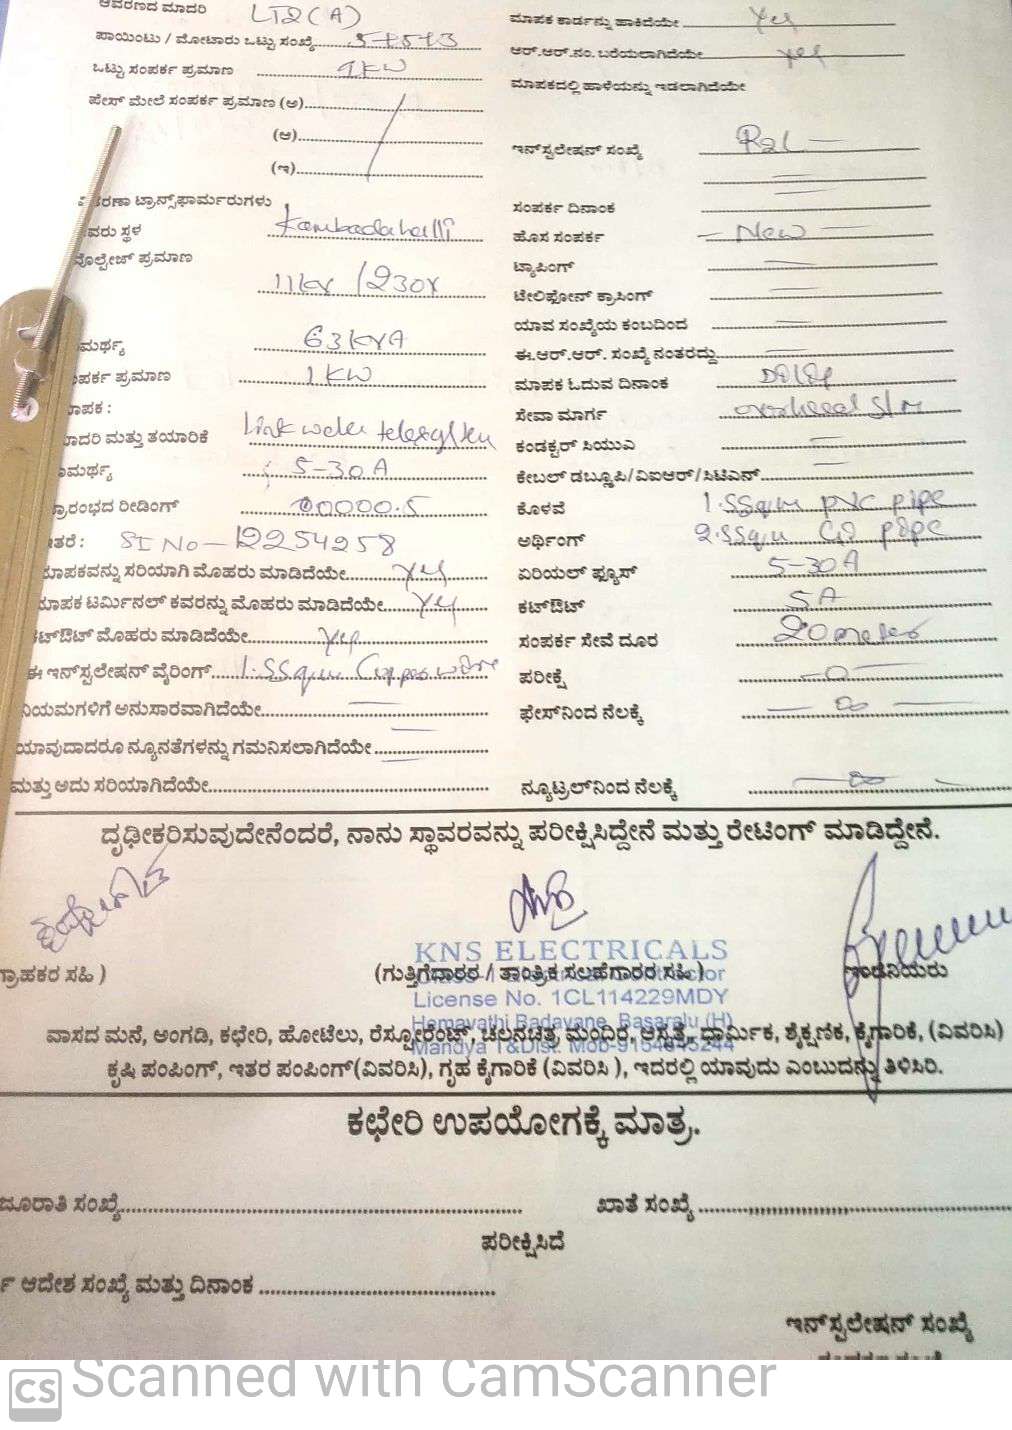 ಆವರಣದ ಮಾದರಿ LT2(A)
ಪಾಯಿಂಟು / ಮೋಟಾರು ಒಟ್ಟು ಸಂಖ್ಯೆ
ಒಟ್ಟು ಸಂಪರ್ಕ ಪ್ರಮಾಣ 1KW
ಫೇಸ್ ಮೇಲೆ ಸಂಪರ್ಕ ಪ್ರಮಾಣ (ಅ)
(ಆ)
(ಇ)
ವಿತರಣಾ ಟ್ರಾನ್ಸ್‌ಫಾರ್ಮರುಗಳು
ಅವರು ಸ್ಥಳ Kambadahalli
ವೋಲ್ಟೇಜ್ ಪ್ರಮಾಣ
11KV / 230V
ಮರ್ಥ್ಯ 63KVA
ಂಪರ್ಕ ಪ್ರಮಾಣ 1KW
ಾಪಕ :
ಾದರಿ ಮತ್ತು ತಯಾರಿಕೆ Link
ಾಮರ್ಥ್ಯ 5-30A
್ರಾರಂಭದ ರೀಡಿಂಗ್ 00000.5
ಇತರೆ : SI No - 12254258
ಮಾಪಕವನ್ನು ಸರಿಯಾಗಿ ಮೊಹರು ಮಾಡಿದೆಯೇ Yes
ಮಾಪಕ ಟರ್ಮಿನಲ್ ಕವರನ್ನು ಮೊಹರು ಮಾಡಿದೆಯೇ Yes
ಕಟ್‌ಔಟ್ ಮೊಹರು ಮಾಡಿದೆಯೇ Yes
ಈ ಇನ್‌ಸ್ಟಲೇಷನ್ ವೈರಿಂಗ್ 1.5Sqmm Copper wire
ನಿಯಮಗಳಿಗೆ ಅನುಸಾರವಾಗಿದೆಯೇ
ಯಾವುದಾದರೂ ನ್ಯೂನತೆಗಳನ್ನು ಗಮನಿಸಲಾಗಿದೆಯೇ
ಮತ್ತು ಅದು ಸರಿಯಾಗಿದೆಯೇ
ಮಾಪಕ ಕಾರ್ಡನ್ನು ಹಾಕಿದೆಯೇ Yes
ಆರ್.ಆರ್.ನಂ. ಬರೆಯಲಾಗಿದೆಯೇ Yes
ಮಾಪಕದಲ್ಲಿ ಹಾಳೆಯನ್ನು ಇಡಲಾಗಿದೆಯೇ
ಇನ್‌ಸ್ಟಲೇಷನ್ ಸಂಖ್ಯೆ
ಸಂಪರ್ಕ ದಿನಾಂಕ
ಹೊಸ ಸಂಪರ್ಕ - New -
ಟ್ಯಾಪಿಂಗ್
ಟೇಲಿಫೋನ್ ಕ್ರಾಸಿಂಗ್
ಯಾವ ಸಂಖ್ಯೆಯ ಕಂಬದಿಂದ
ಈ.ಆರ್.ಆರ್. ಸಂಖ್ಯೆ ನಂತರದ್ದು
ಮಾಪಕ ಓದುವ ದಿನಾಂಕ
ಸೇವಾ ಮಾರ್ಗ overhead
ಕಂಡಕ್ಟರ್ ಸಿಯುಎ
ಕೇಬಲ್ ಡಬ್ಲೂಪಿ/ವಿಐಆರ್/ಸಿಟಿಎಸ್
ಕೊಳವೆ 1.5Sqmm PVC pipe
ಅರ್ಥಿಂಗ್ 2.5Sqmm GI pipe
ಏರಿಯಲ್ ಫ್ಯೂಸ್ 5-30A
ಕಟ್‌ಔಟ್ 5A
ಸಂಪರ್ಕ ಸೇವೆ ದೂರ 20 meter
ಪರೀಕ್ಷೆ
ಫೇಸ್‌ನಿಂದ ನೆಲಕ್ಕೆ
ನ್ಯೂಟ್ರಲ್‌ನಿಂದ ನೆಲಕ್ಕೆ
ದೃಢೀಕರಿಸುವುದೇನೆಂದರೆ, ನಾನು ಸ್ಥಾವರವನ್ನು ಪರೀಕ್ಷಿಸಿದ್ದೇನೆ ಮತ್ತು ರೇಟಿಂಗ್ ಮಾಡಿದ್ದೇನೆ.
KNS ELECTRICALS
ಗ್ರಾಹಕರ ಸಹಿ ) (ಗುತ್ತಿಗೆದಾರರ / ತಾಂತ್ರಿಕ ಸಲಹೆಗಾರರ ಸಹಿ)
License No. 1CL114229MDY
Hemavathi Badavane, Basaralu (H)
Mandya T&Dist.
ವಾಸದ ಮನೆ, ಅಂಗಡಿ, ಕಛೇರಿ, ಹೋಟೆಲು, ರೆಸ್ಟೋರೆಂಟ್, ಚಲನಚಿತ್ರ ಮಂದಿರ, ಆಸ್ಪತ್ರೆ, ಧಾರ್ಮಿಕ, ಶೈಕ್ಷಣಿಕ, ಕೈಗಾರಿಕೆ, (ವಿವರಿಸಿ)
ಕೃಷಿ ಪಂಪಿಂಗ್, ಇತರ ಪಂಪಿಂಗ್(ವಿವರಿಸಿ), ಗೃಹ ಕೈಗಾರಿಕೆ (ವಿವರಿಸಿ ), ಇದರಲ್ಲಿ ಯಾವುದು ಎಂಬುದನ್ನು ತಿಳಿಸಿರಿ.
ಕಛೇರಿ ಉಪಯೋಗಕ್ಕೆ ಮಾತ್ರ.
ಜೂರಾತಿ ಸಂಖ್ಯೆ ಖಾತೆ ಸಂಖ್ಯೆ
ಪರೀಕ್ಷಿಸಿದೆ
ರ್ ಆದೇಶ ಸಂಖ್ಯೆ ಮತ್ತು ದಿನಾಂಕ
ಇನ್‌ಸ್ಟಲೇಷನ್ ಸಂಖ್ಯೆ
CS Scanned with CamScanner